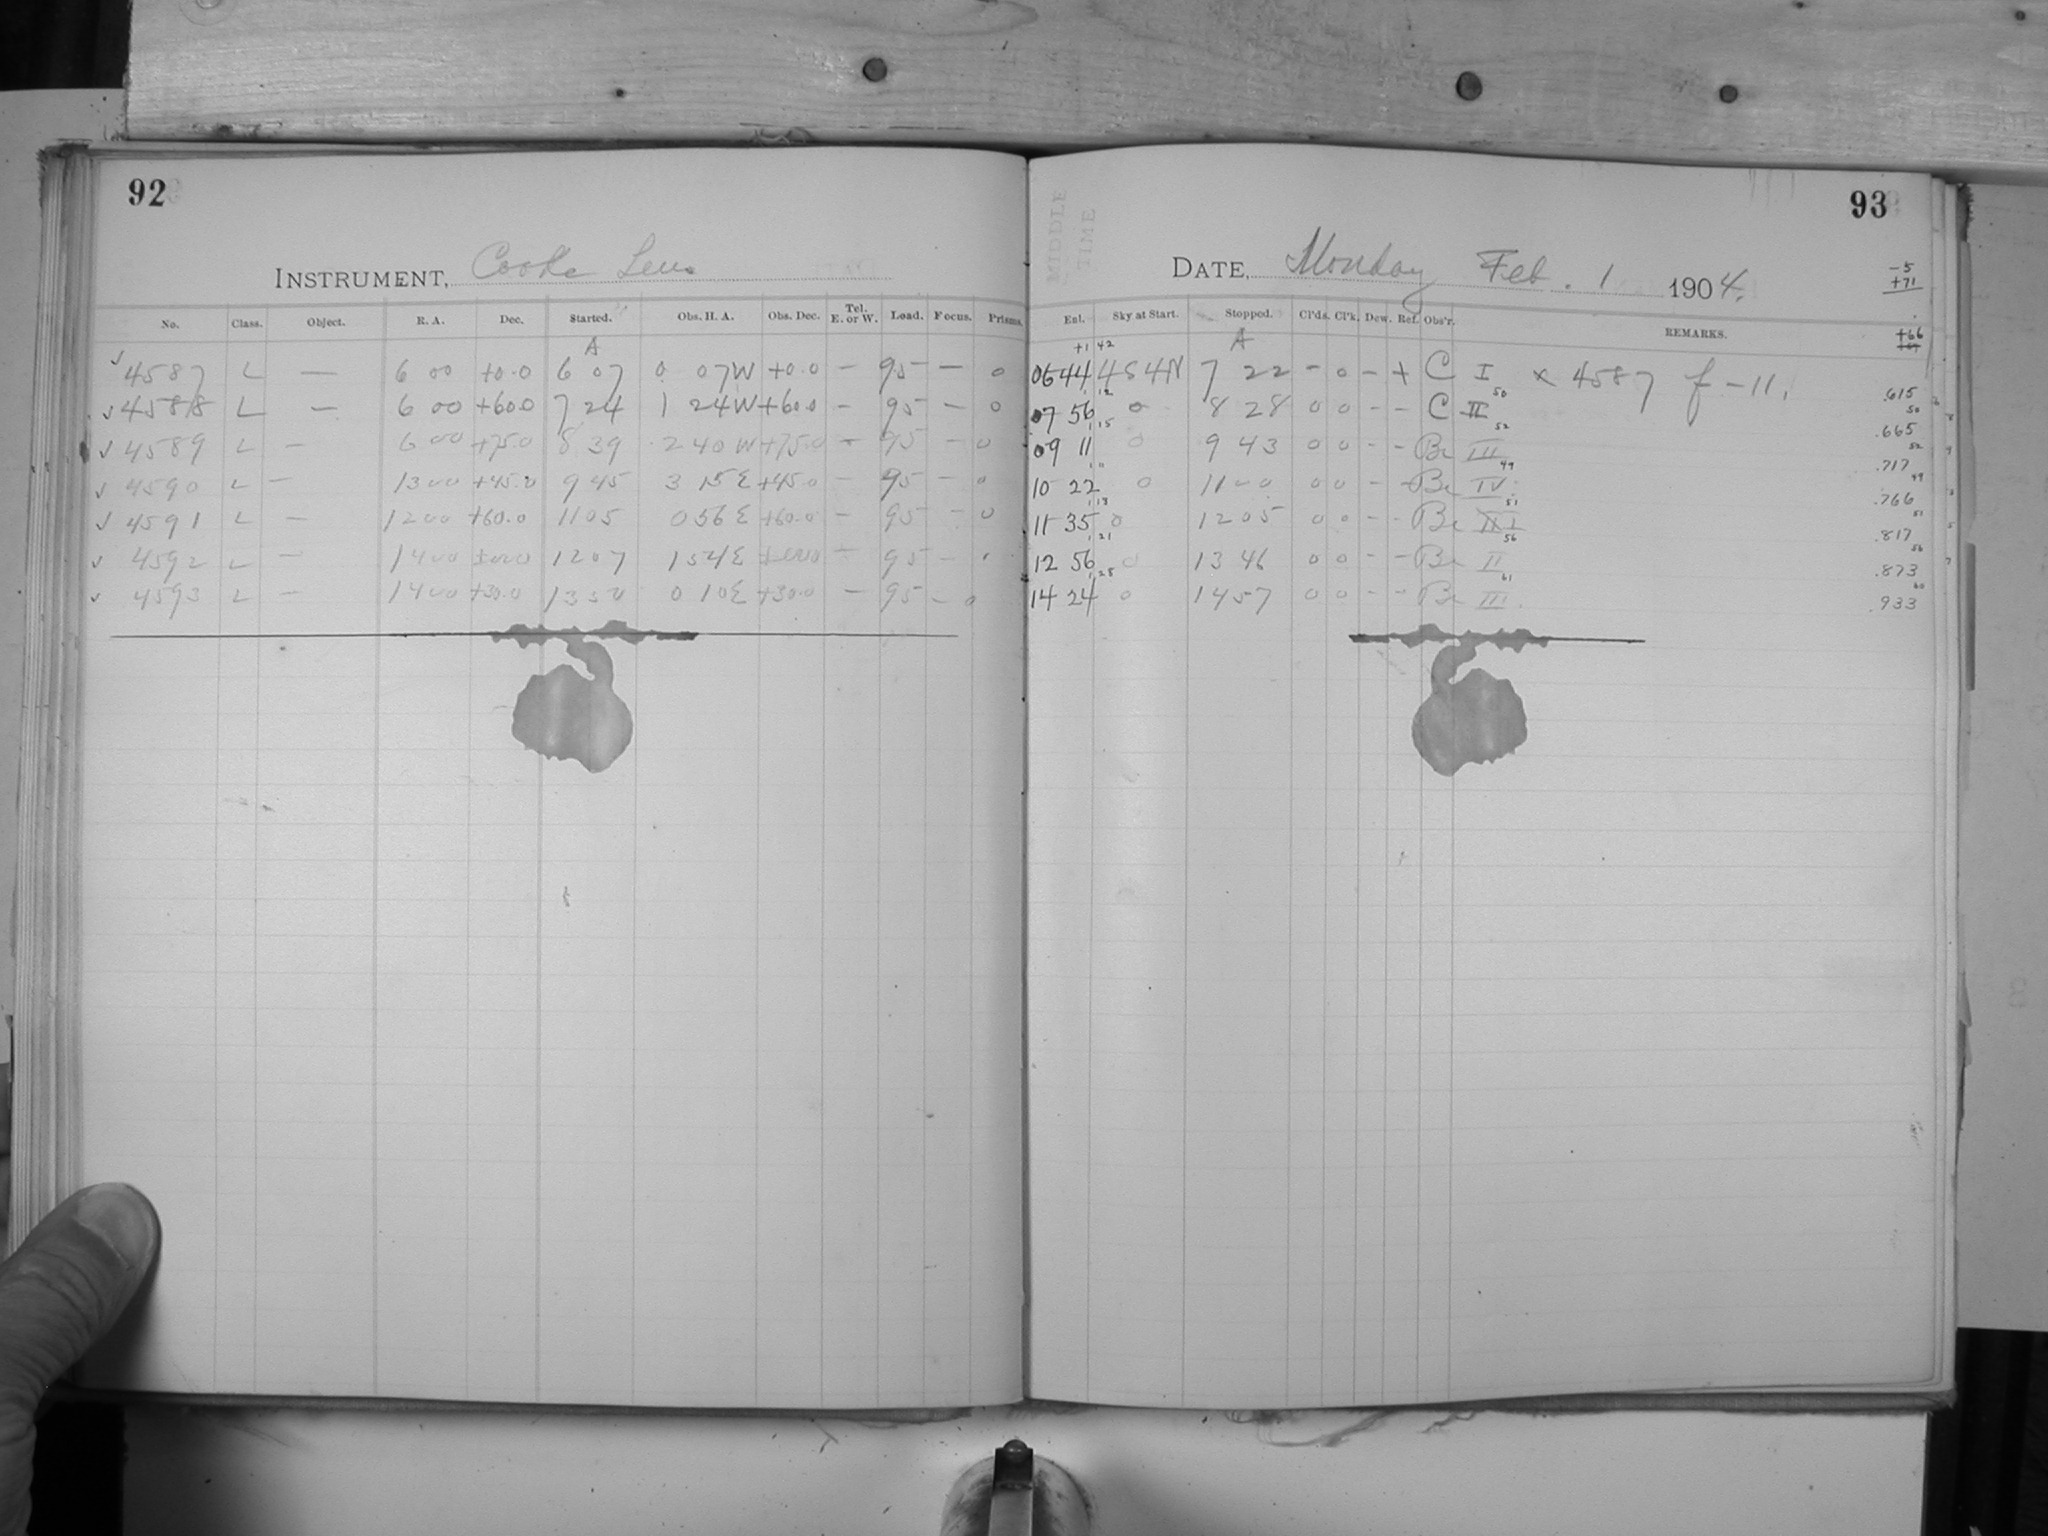 92
INSTRUMENT, Cooke Lens
No. Class. Object. R. A. Dec. Started. Obs. H. A. Obs. Dec. Tel. E. or W. Load. Focus. Prisms.
A
✓ 4587 L — 6 00 +0.0 6 07 0 07W +0.0 — 95 — 0
✓ 4588 L — 6 00 +60.0 7 24 1 24W +60.0 — 95 — 0
✓ 4589 L — 6 00 +75.0 8 39 2 40W +75.0 — 95 — 0
✓ 4590 L — 13 00 +45.0 9 45 3 15E +45.0 — 95 — 0
✓ 4591 L — 12 00 +60.0 11 05 0 56E +60.0 — 95 — 0
✓ 4592 L — 14 00 12 07 1 54E — 95 —
✓ 4593 L — 14 00 +30.0 13 50 0 10E +30.0 — 95 — 0
MIDDLE
TIME
93
DATE, Monday Feb. 1 1904.
-5
+71
+66
Enl. Sky at Start. Stopped. Cl'ds. Cl'k. Dew. Ref. Obs'r. REMARKS.
+1 42 A
06 44 4S4N 7 22 – 0 – + C I × 4587 f – 11. .615
1 12 50 50
07 56 0 8 28 0 0 – – C II .665
1 15 52 52
09 11 0 9 43 0 0 – – Be III .717
1 11 49 49
10 22 0 11 00 0 0 – – Be IV .766
1 13 51 51
11 35 0 12 05 0 0 – – Be .817
1 21 56 56
12 56 0 13 46 0 0 – – Be II .873
1 28 61 60
14 24 0 14 57 0 0 – – Be III .933